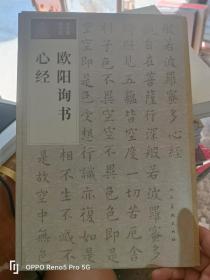 般若波羅蜜多心經
觀自在菩薩行深般若波羅蜜多
時照見五蘊皆空度一切苦厄舍
子色不異空空不異色色即是
空空即是色受想行識亦復如是
相不生不滅
是故空中無
欧阳询书
心经
OPPO Reno5 Pro 5G